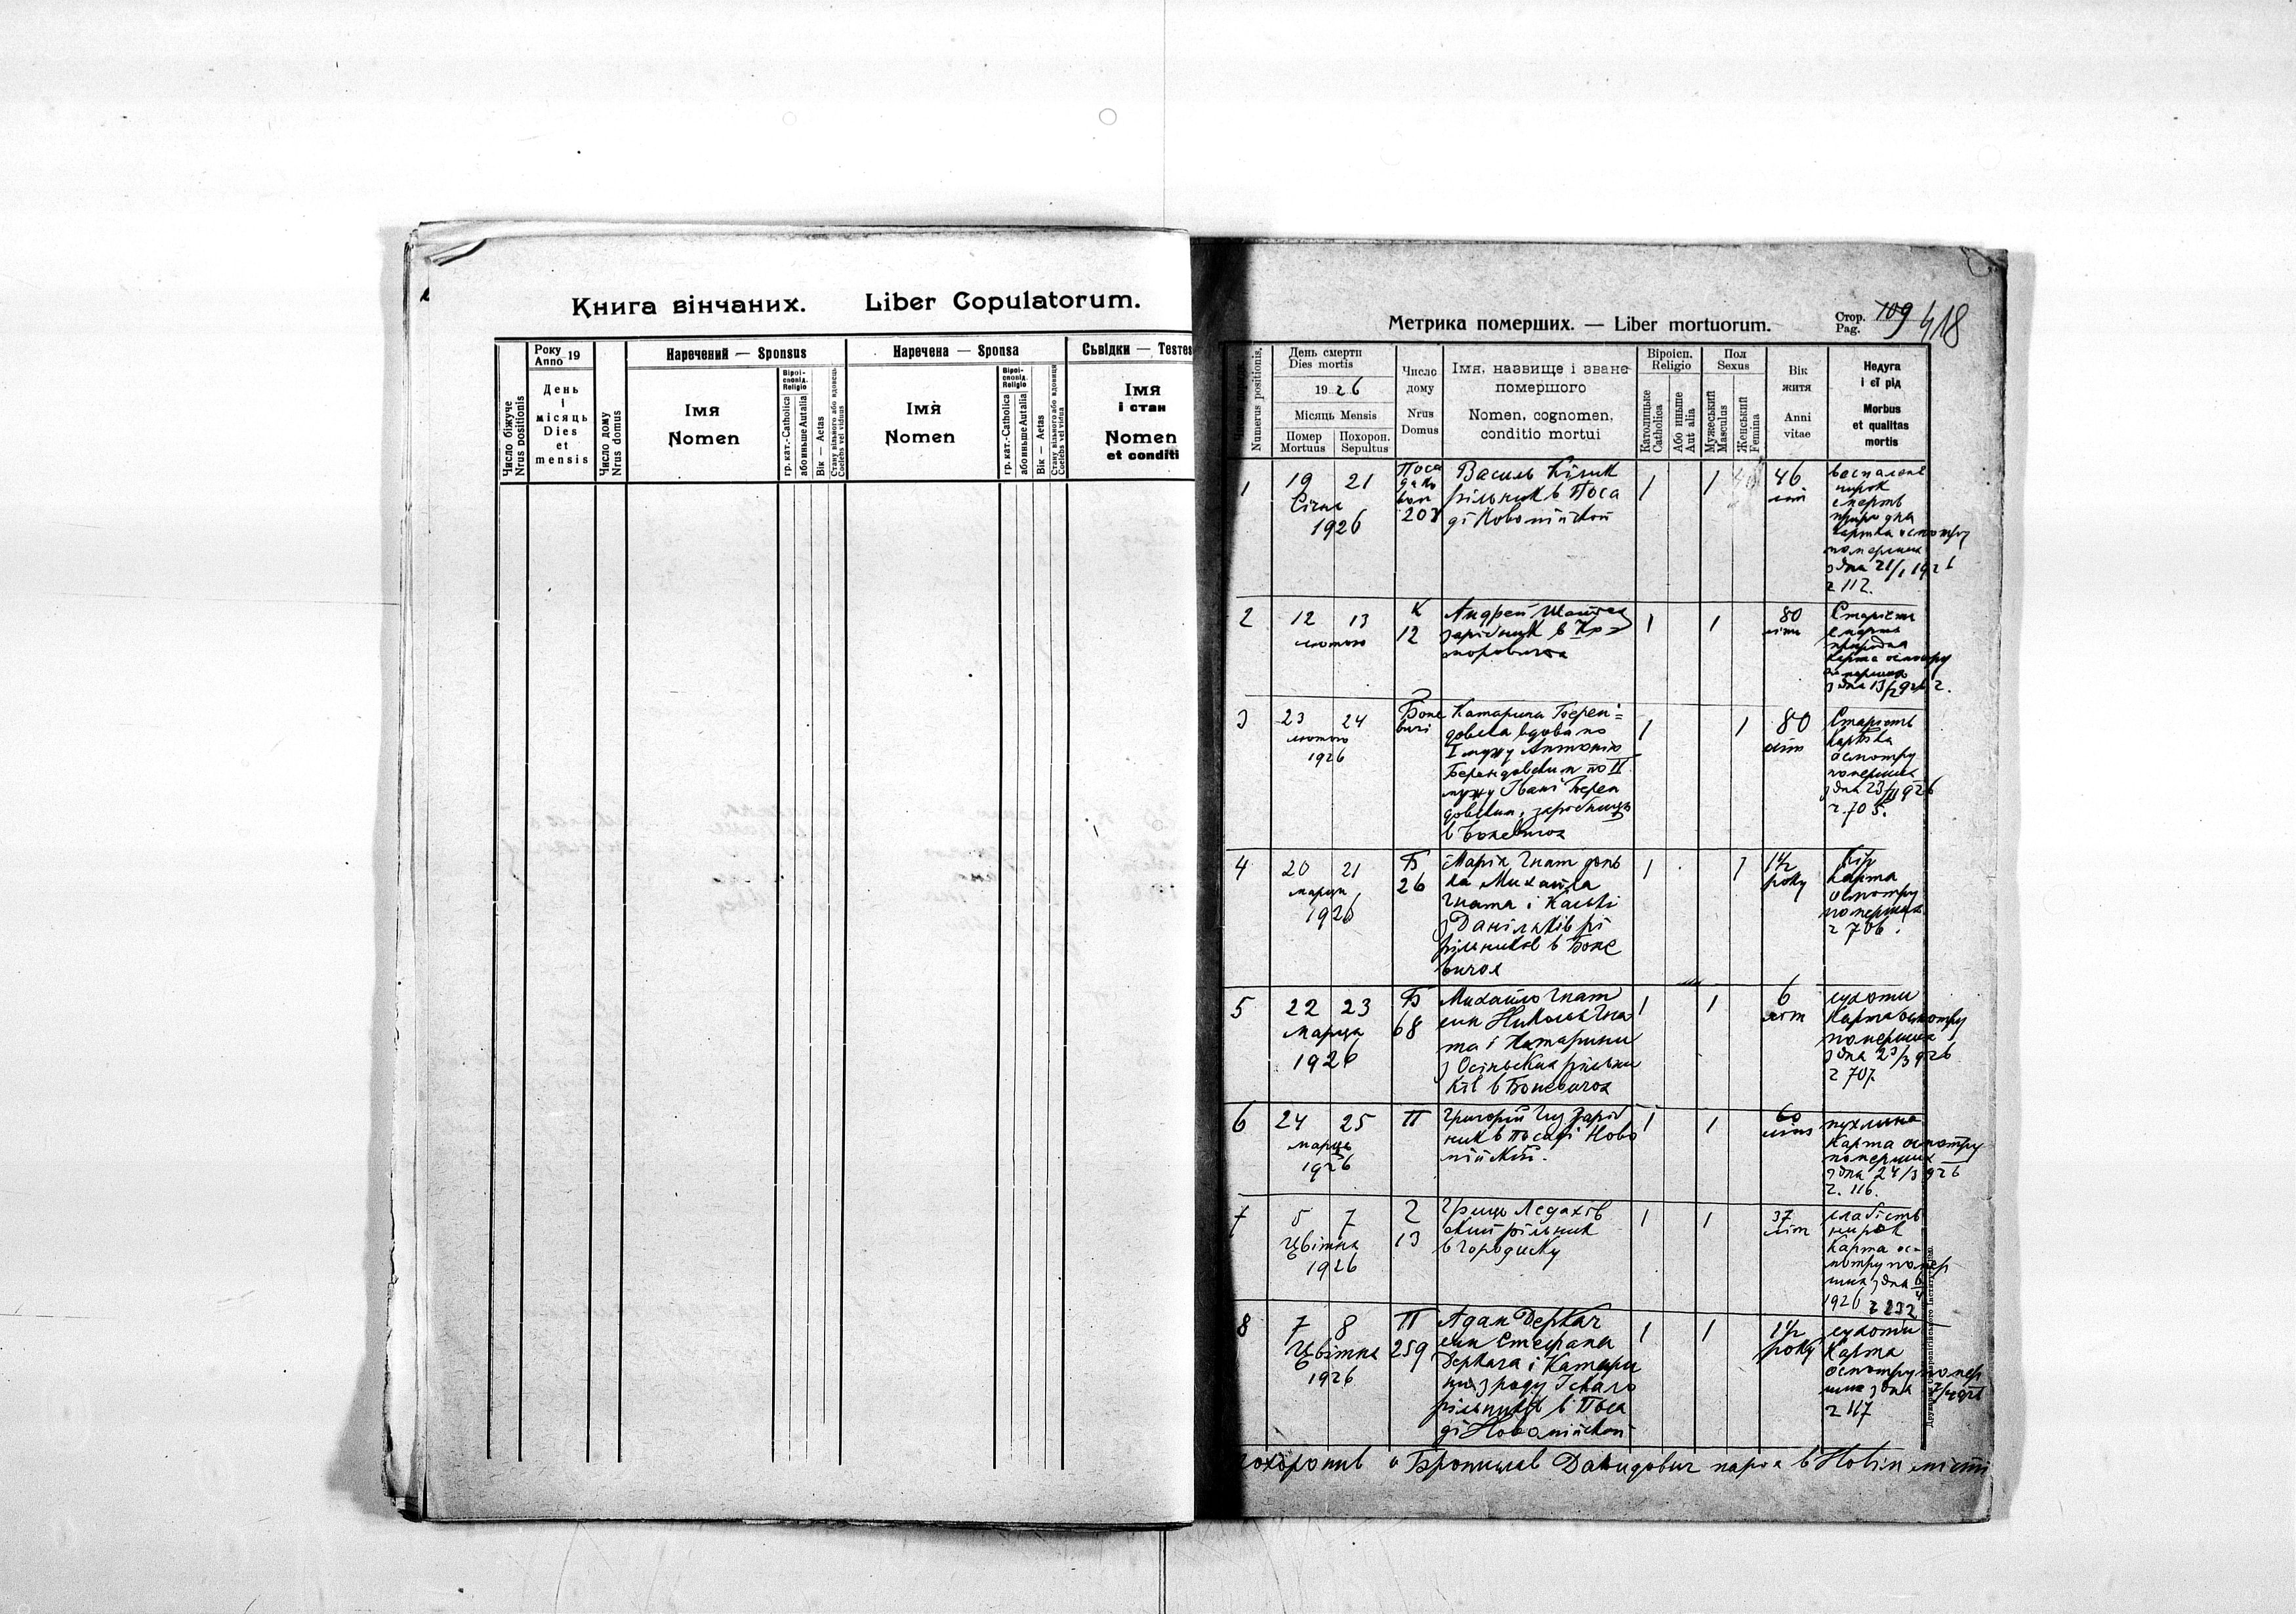 Книга вінчаних. Liber Copulatorum.
Число біжуче
Nrus positionis
Року
Anno 19
День
і
місяць
Dies
et
mensis
Число дому
Nrus domus
Наречений — Sponsus
Імя
Nomen
Віроі-
сповід.
Religio
гр. кат.-Catholica
або иньше Aut alia
Вік — Aetas
Стану вільного або вдовець
Coelebs vel viduus
Наречена — Sponsa
Імя
Nomen
Віроі-
сповід.
Religio
гр. кат.-Catholica
або иньше Aut alia
Вік — Aetas
Стану вільного або вдовиця
Coelebs vel vidua
Сьвідки — Testes
Імя
і стан
Nomen
et conditi
Метрика померших. — Liber mortuorum.
Стор.
Pag.
109 418
Numerus positionis.
День смерти
Dies mortis
1926
Місяць Mensis
Помер
Mortuus
Похорон.
Sepultus
Число
дому
Nrus
Domus
Імя, назвище і званє
помершого
Nomen, cognomen,
conditio mortui
Віроісп.
Religio
Католицьке
Catholica
Або иньше
Aut alia
Пол
Sexus
Мужеський
Masculus
Женський
Femina
Вік
житя
Anni
vitae
Недуга
і єї рід
Morbus
et qualitas
mortis
1
19 21
Січня
1926
Поса
да Но
вом
Василь
рільник в Поса
ді Новомійской
1 1
46
літ
нирок
смерть
природна
картка осмотру
померших
з дня 21/1 1926
ч 112.
2
12 13
лютого
К
12
Андрей
зарібник в
1 1
80
літ
смерть
природна
Карта осмотру
померших
3
23 24
лютого
1926
Боне
вичі
Катарина Берен=
довска вдова по
I мужу Антонію
Берендовским по II
мужу Івані Берен
довским, зарібниця
в Боневичах
1 1
80
літ
Старість
картка
осмотру
померших
з дня 23/II 926
ч. 705.
4
20 21
марця
1926
Б
26
Марія Гнат донь
ка Михайла
Гната і Каськи
з Данільків рі
рільників в Боне
вичах
1 1
1½
року
Кір
карта
осмотру
померших
ч 706.
5
22 23
марця
1926
Б
68
Михайло Гнат
син Николи Гна
та і Катарини
з Осінських рільни
ків в Боневичах
1 1
6
літ
сухоти
Карта осмотру
померших
з дня 23/3 926
ч 707.
6
24 25
марця
1926
П
Григорій Гуз заріб
ник в Посаді Ново
мійскій.
1 1
60
літ
пухлина
Карта осмотру
померших
з дня 24/3 926
ч. 116.
7
5 7
Цвітня
1926
Г
13
Гриць Ледахів
ский рільник
в Городиску
1 1
37
літ
слабість
нирок
Карта ос-
мотру помер
ших з дня
1926 ч 232
8
7 8
Цвітня
1926
П
259
Адам Деркач
син Стефана
Деркача і Катари
ни з роду Іскало
рільників в Поса
ді Новомійской
1 1
1½
року
сухоти
Карта
осмотру помер
ших з дня 7/4 926
ч 117
похоронив о Бронислав Давидович парох в Новім місті